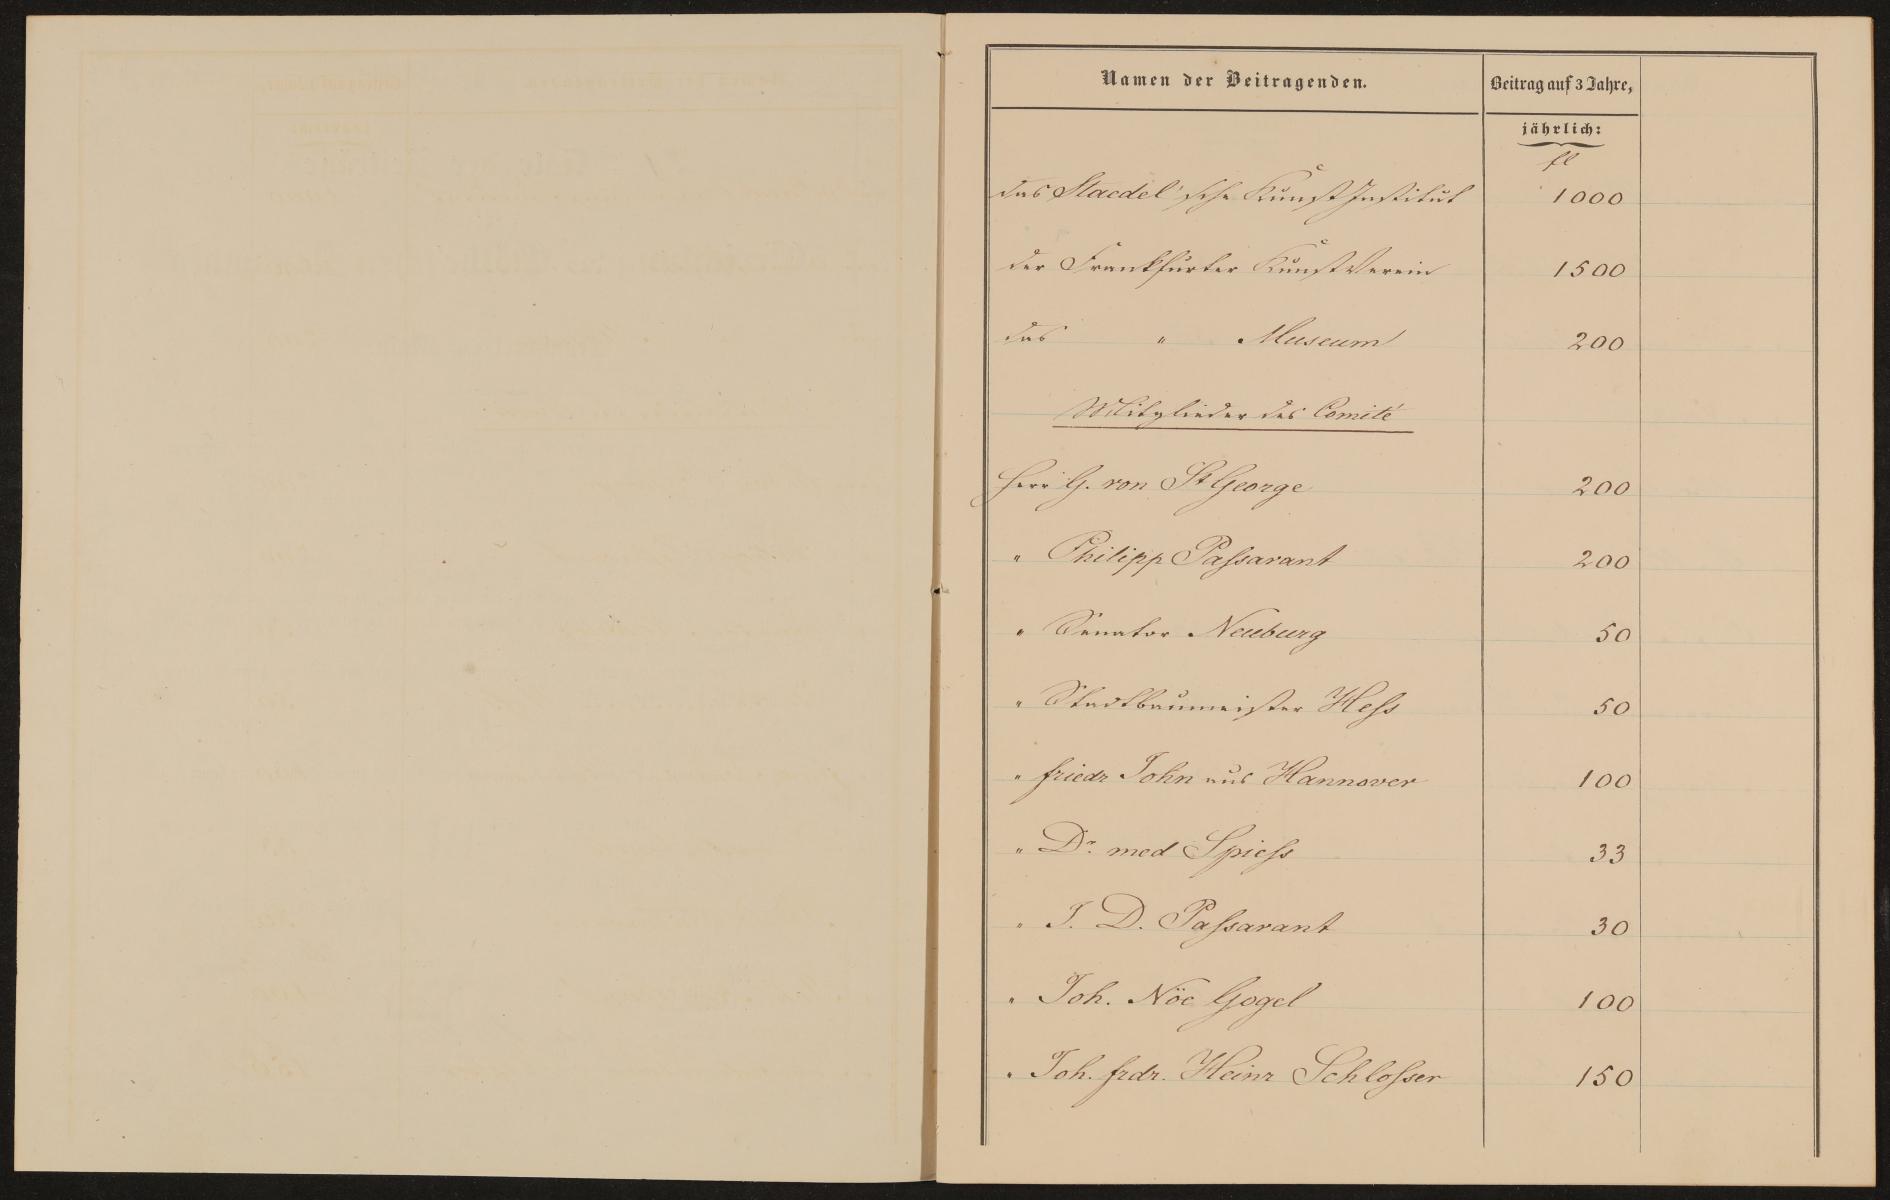 Namen der Beitragenden.
Beitrag auf 3 Jahre,
jährlich:
fl
das Staedel'sche Kunst Institut 1000
der Frankfurter Kunst Verein 1500
das " Museum 200
Mitglieder des Comité
Herr G. von St George 200
" Philipp Passavant 200
" Senator Neuburg 50
" Stadtbaumeister Hess 50
" Friedr John aus Hannover 100
" Dr. med Spiess 33
" J. D. Passavant 30
" Joh. Nöe Gogel 100
" Joh. Frdr. Heinr Schlosser 150